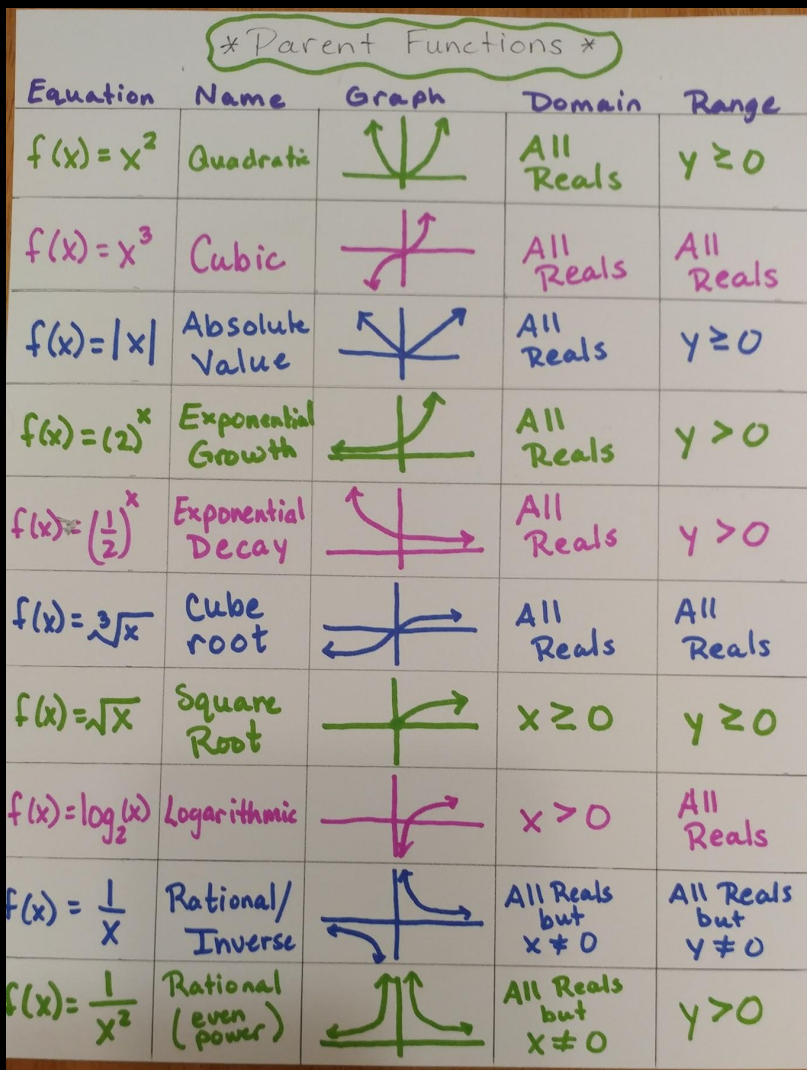 * Parent Functions *
Equation Name Graph Domain Range
f(x) = x² Quadratic All Reals y ≥ 0
f(x) = x³ Cubic All Reals All Reals
f(x) = |x| Absolute Value All Reals y ≥ 0
f(x) = (2)ˣ Exponential Growth All Reals y > 0
f(x) = (1/2)ˣ Exponential Decay All Reals y > 0
f(x) = ³√x Cube root All Reals All Reals
f(x) = √x Square Root x ≥ 0 y ≥ 0
f(x) = log₂(x) Logarithmic x > 0 All Reals
f(x) = 1/x Rational/ Inverse All Reals but x ≠ 0 All Reals but y ≠ 0
f(x) = 1/x² Rational (even power) All Reals but x ≠ 0 y > 0